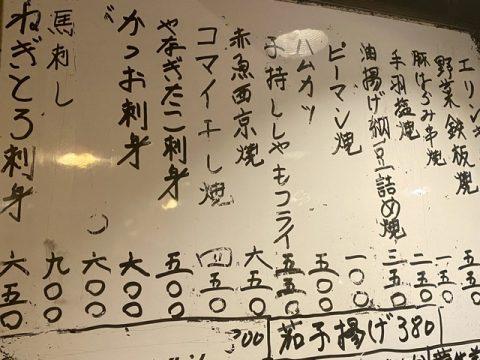 エリン
野菜鉄板焼 五五〇
豚はらみ串焼 一五〇
手羽塩焼 二五〇
油揚げ納豆詰め焼 三五〇
ピーマン焼 一〇〇
ハムカツ 五〇〇
子持ししゃもフライ 五五〇
赤魚西京焼 六五〇
コマイ干し焼 四五〇
やなぎたこ刺身 五〇〇
かつお刺身 六〇〇
六〇〇
馬刺し 九〇〇
ねぎとろ刺身 六五〇
茄子揚げ380